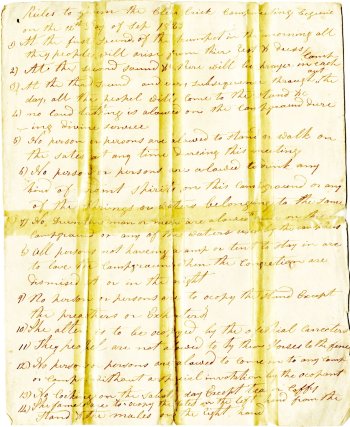 Rules to govern the Clear Creek Congregating beginne
on the 12th of Sep 18
1) At the first sound of the trumpet in the morning all
the people will arise from their rest & dress
2) At the second sound there will be prayer in each Camp
3) At the third sound and every subsequent through out the
day all the peopel will come to the Stand &
4) no card is alowed on the Campground dure
ing divine service
5) No person or persons are alowed to Stand or walk on
the seats at any time dureing this meeting
6) No person or persons are alowed to drink any
kind of ardent spirits on this campground or any
of the springs or waters belonging to the same
7) No drunken man or men are alowed on the
campground or any of the waters used by the
8) All persons not haveing a camp or tent to stay in are
to leave the Campground when the Congretion are
dismised at in the night
9) No person or persons are to ocopy the Stand Except
the preachers or Exhorters
10) The alter is to be ocopyed by the
11) The people are not alowed to ty there Horses to the
12) No person or persons are alowed to come in to any camp
or camps without a special invitation by the ocopant
13) No Cooking on the Sabath day Except tea or Coffy
14) The females are to ocopy the seats on the left hand from the
Stand & the males on the right hand